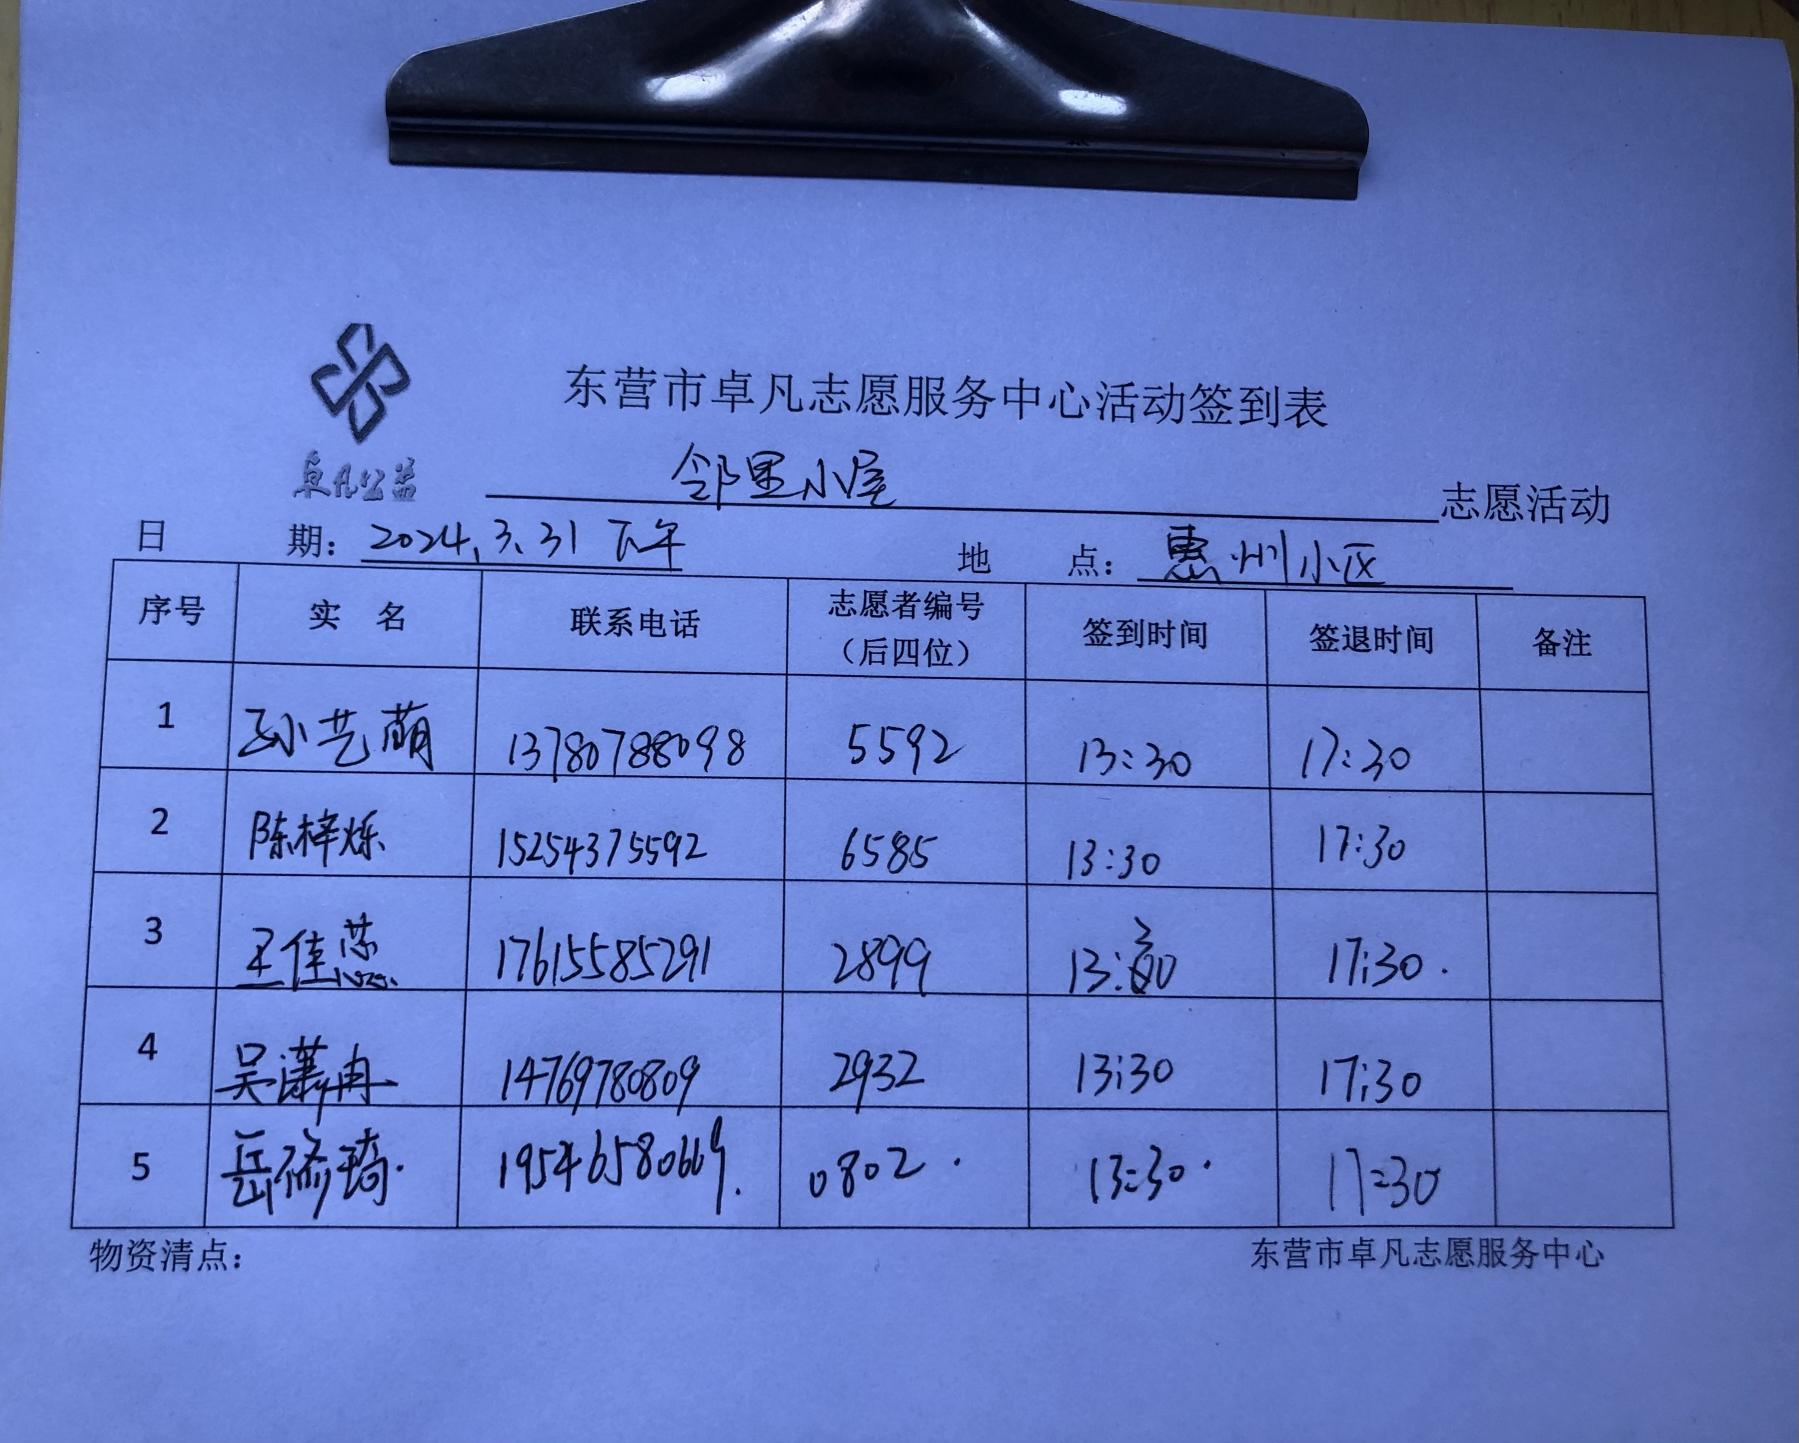 东营市卓凡志愿服务中心活动签到表
卓凡公益
邻里小屋 志愿活动
日 期：2024.3.31 下午 地 点：惠州小区
序号 实 名 联系电话 志愿者编号（后四位） 签到时间 签退时间 备注
1 孙艺萌 13780788098 5592 13:30 17:30
2 陈梓烁 15254375592 6585 13:30 17:30
3 王佳 17615585291 2899 13:30 17:30.
4 吴潇冉 14769780809 2932 13:30 17:30
5 岳修琦. 19546580669. 0802. 13:30. 17:30
物资清点： 东营市卓凡志愿服务中心